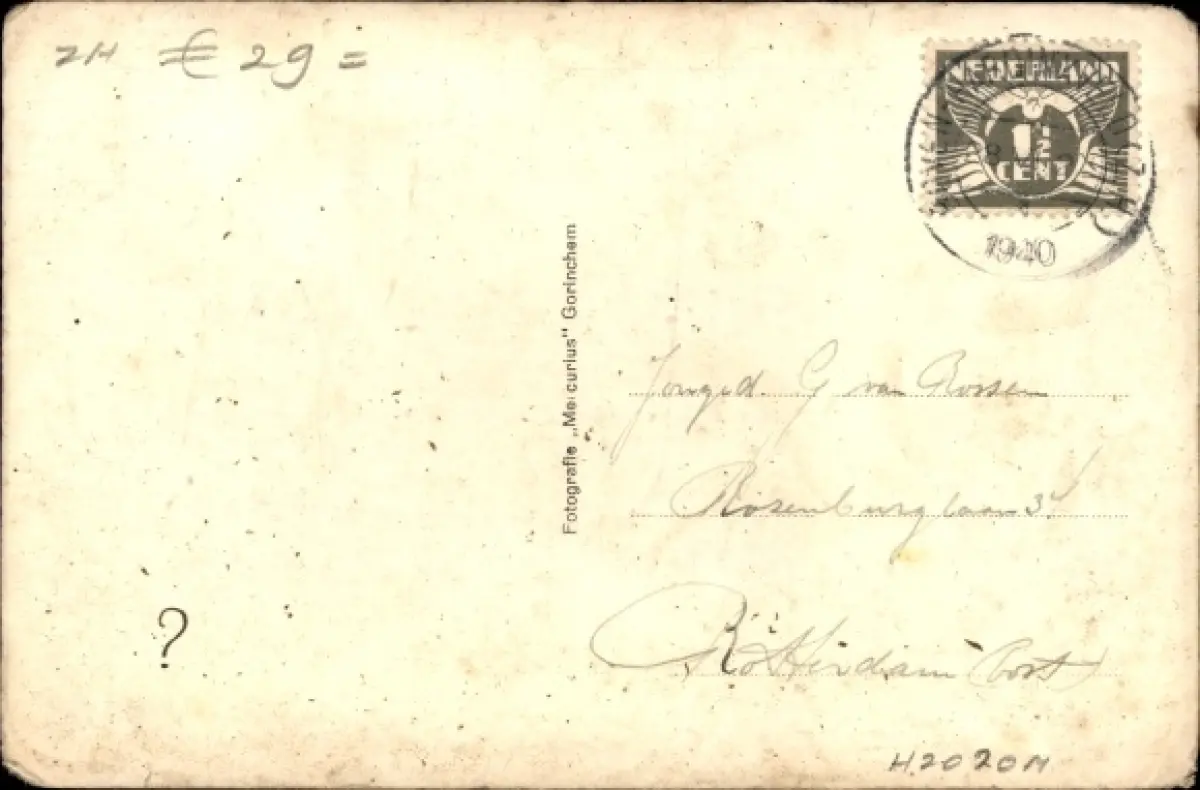 ZH € 29 =
NEDERLAND
1½
CENT
1940
Fotografie „Mercurius" Gorinchem
Jonged. G van Rossem
Rosenburglaan 3
Rotterdam (Oost)
?
H2020M